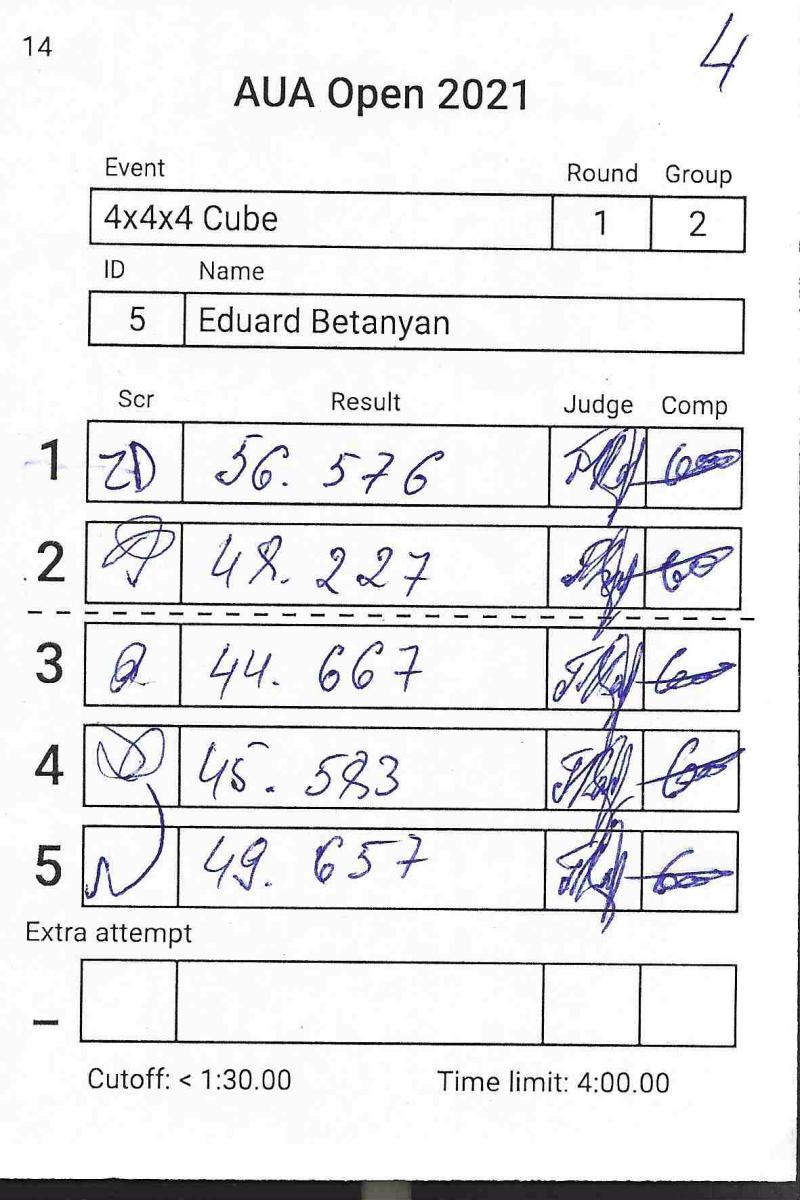 14
4
AUA Open 2021
Event Round Group
4x4x4 Cube 1 2
ID Name
5 Eduard Betanyan
Scr Result Judge Comp
1 ZD 56.576
2 48.227
3 44.667
4 45.583
5 49.657
Extra attempt
_
Cutoff: < 1:30.00 Time limit: 4:00.00